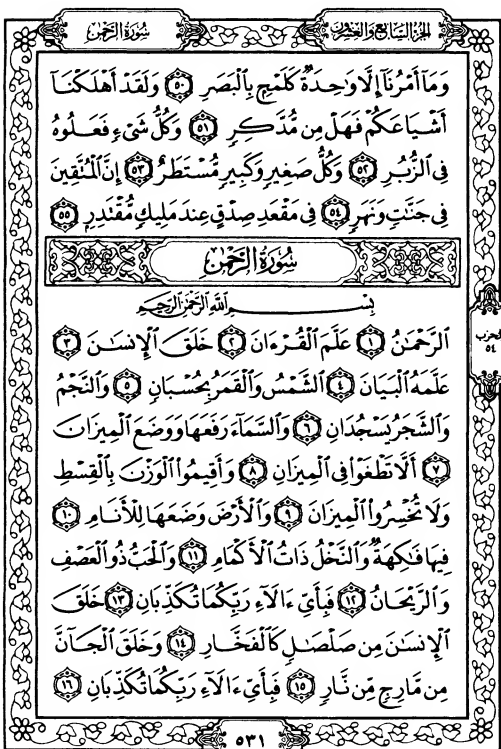 سُورَةُ الرَّحْمٰن
الجُزْءُ السَّابِعُ وَالعِشْرُونَ
وَمَآ أَمْرُنَآ إِلَّا وَٰحِدَةٌ كَلَمْحٍۭ بِٱلْبَصَرِ ٥٠ وَلَقَدْ أَهْلَكْنَآ
أَشْيَاعَكُمْ فَهَلْ مِن مُّدَّكِرٍ ٥١ وَكُلُّ شَىْءٍ فَعَلُوهُ
فِى ٱلزُّبُرِ ٥٢ وَكُلُّ صَغِيرٍ وَكَبِيرٍ مُّسْتَطَرٌ ٥٣ إِنَّ ٱلْمُتَّقِينَ
فِى جَنَّٰتٍ وَنَهَرٍ ٥٤ فِى مَقْعَدِ صِدْقٍ عِندَ مَلِيكٍ مُّقْتَدِرٍۭ ٥٥
سُورَةُ الرَّحْمٰن
بِسْمِ ٱللَّهِ ٱلرَّحْمَٰنِ ٱلرَّحِيمِ
ٱلرَّحْمَٰنُ ١ عَلَّمَ ٱلْقُرْءَانَ ٢ خَلَقَ ٱلْإِنسَٰنَ ٣
عَلَّمَهُ ٱلْبَيَانَ ٤ ٱلشَّمْسُ وَٱلْقَمَرُ بِحُسْبَانٍ ٥ وَٱلنَّجْمُ
وَٱلشَّجَرُ يَسْجُدَانِ ٦ وَٱلسَّمَآءَ رَفَعَهَا وَوَضَعَ ٱلْمِيزَانَ
٧ أَلَّا تَطْغَوْا۟ فِى ٱلْمِيزَانِ ٨ وَأَقِيمُوا۟ ٱلْوَزْنَ بِٱلْقِسْطِ
وَلَا تُخْسِرُوا۟ ٱلْمِيزَانَ ٩ وَٱلْأَرْضَ وَضَعَهَا لِلْأَنَامِ ١٠
فِيهَا فَٰكِهَةٌ وَٱلنَّخْلُ ذَاتُ ٱلْأَكْمَامِ ١١ وَٱلْحَبُّ ذُو ٱلْعَصْفِ
وَٱلرَّيْحَانُ ١٢ فَبِأَىِّ ءَالَآءِ رَبِّكُمَا تُكَذِّبَانِ ١٣ خَلَقَ
ٱلْإِنسَٰنَ مِن صَلْصَٰلٍ كَٱلْفَخَّارِ ١٤ وَخَلَقَ ٱلْجَآنَّ
مِن مَّارِجٍ مِّن نَّارٍ ١٥ فَبِأَىِّ ءَالَآءِ رَبِّكُمَا تُكَذِّبَانِ ١٦
الحزب
٥٤
٥٣١